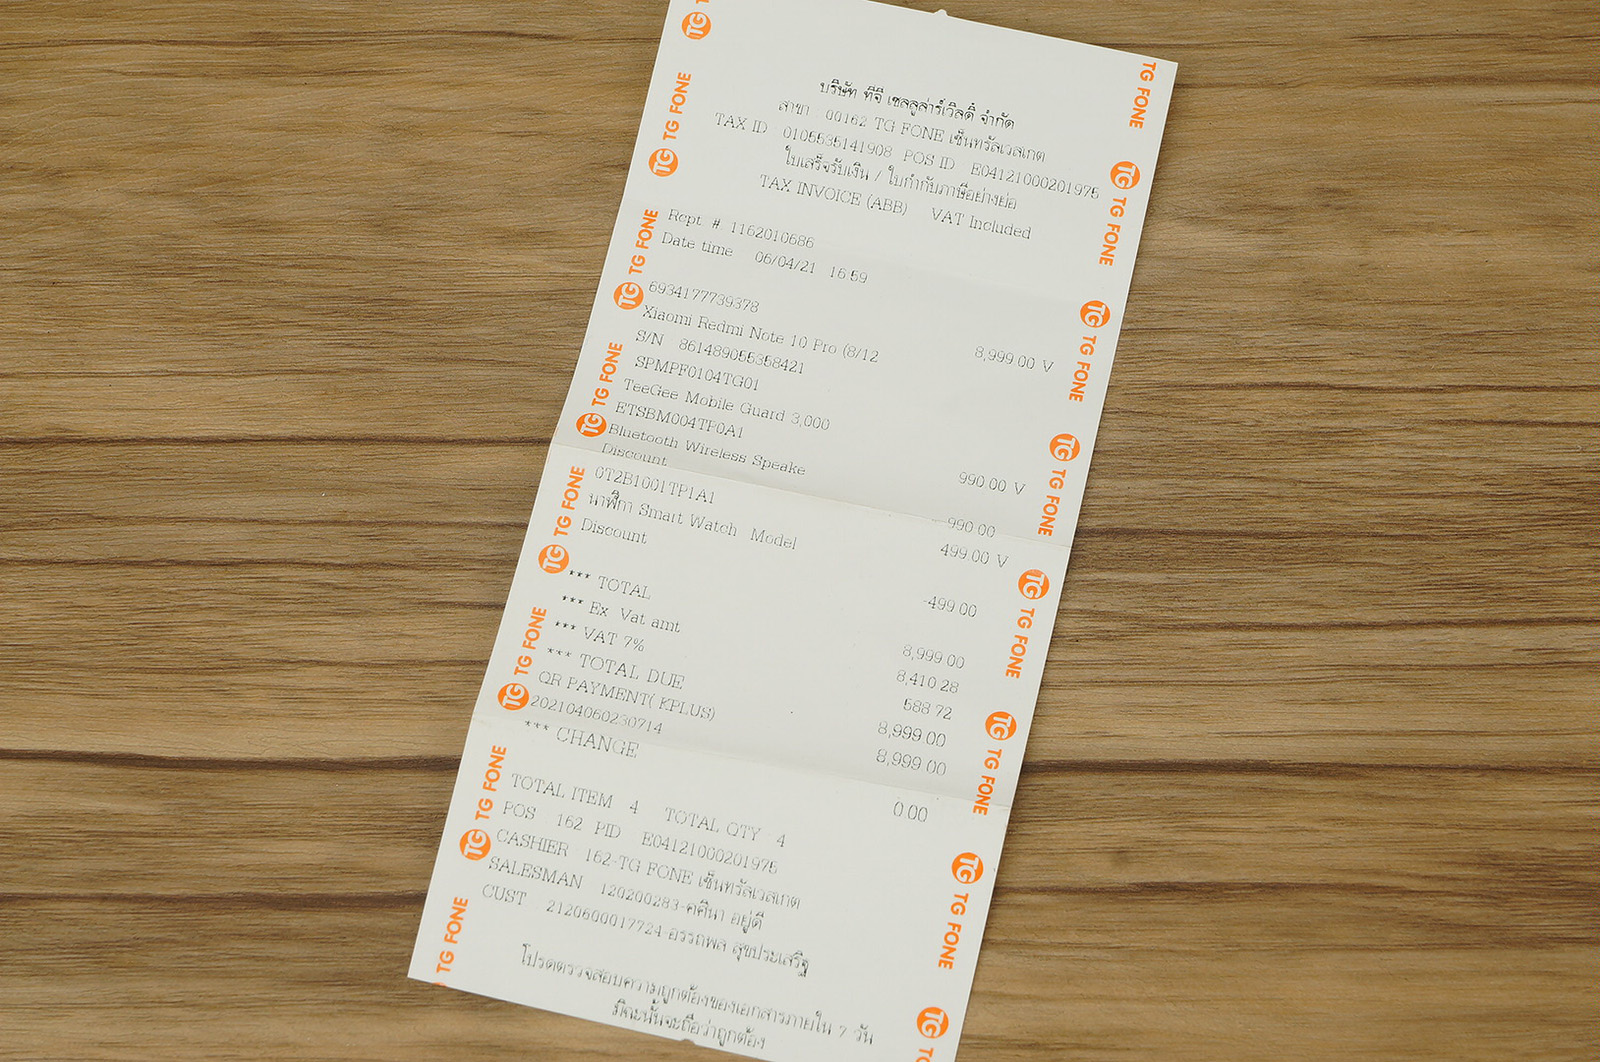 บริษัท ทีจี เซลลูล่าร์เวิลด์ จำกัด
สาขา : 00162 TG FONE เซ็นทรัลเวสเกต
TAX ID 0105535141908 POS ID E04121000201975
ใบเสร็จรับเงิน / ใบกำกับภาษีอย่างย่อ
TAX INVOICE (ABB) VAT Included
Rcpt # 1162010686
Date time 06/04/21 16:59
6934177739378
Xiaomi Redmi Note 10 Pro (8/12 8,999.00 V
S/N 861489055358421
SPMPF0104TG01
TeeGee Mobile Guard 3,000
ETSBM004TP0A1
Bluetooth Wireless Speake 990.00 V
Discount -990.00
0T2B1001TP1A1 499.00 V
นาฬิกา Smart Watch Model
Discount -499.00
*** TOTAL 8,999.00
*** Ex Vat amt 8,410.28
*** VAT 7% 588.72
*** TOTAL DUE 8,999.00
QR PAYMENT( KPLUS) 8,999.00
202104060230714
*** CHANGE 0.00
TOTAL ITEM 4 TOTAL QTY 4
POS : 162 PID E04121000201975
CASHIER : 162-TG FONE เซ็นทรัลเวสเกต
SALESMAN 120200283-คศินา อยู่ดี
CUST : 2120600017724 อรรถพล สุขประเสริฐ
โปรดตรวจสอบความถูกต้องของเอกสารภายใน 7 วัน
มิฉะนั้นจะถือว่าถูกต้อง
TG FONE
TG FONE
TG FONE
TG FONE
TG FONE
TG FONE
TG FONE
TG FONE
TG FONE
TG FONE
TG FONE
TG FONE
TG FONE
TG FONE